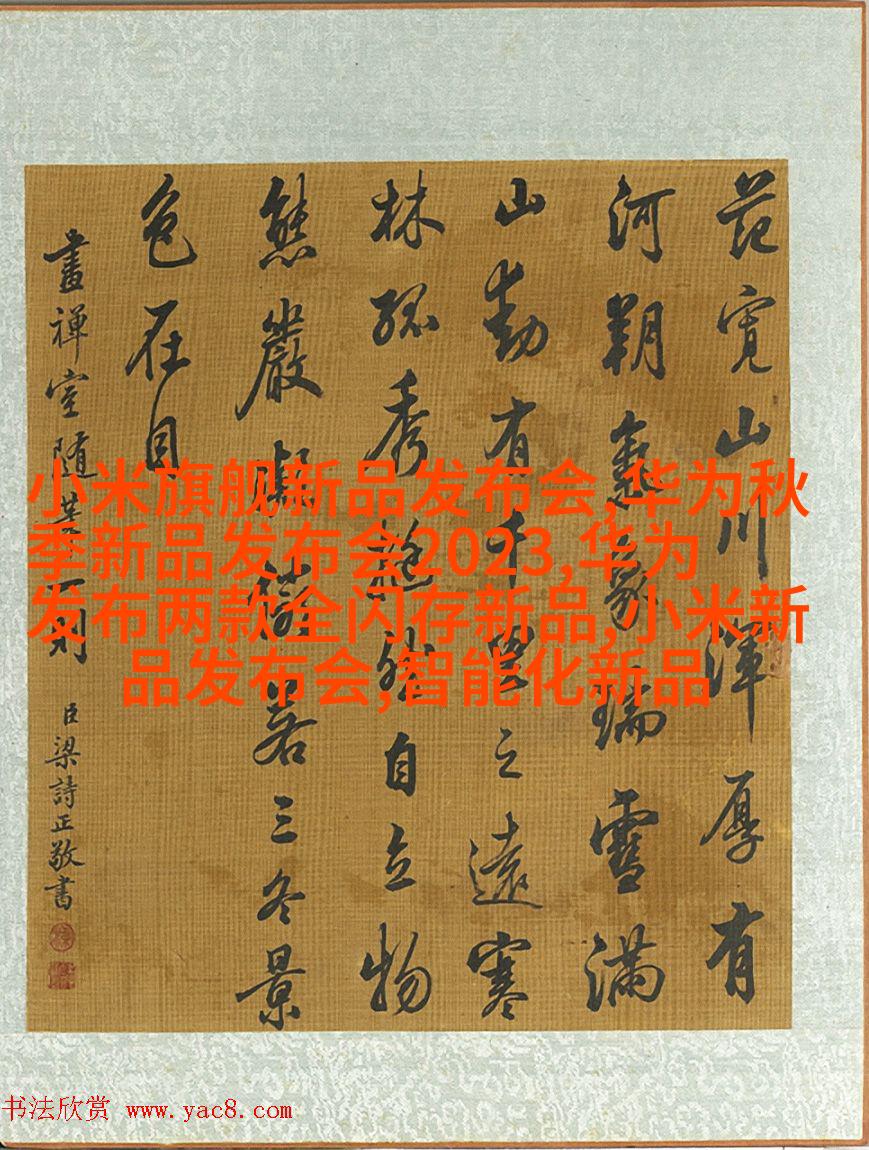 范寬山川渾厚有
河朔氣象瑞雪滿
山動有千里之遠寒
林孤秀挺然自立物
態嚴凝儼若三冬景
色在目
畫禪室隨筆一則
臣梁詩正敬書
小米旗舰新品发布会,华为秋
季新品发布会2023,华为
发布两款全闪存新品,小米新
品发布会,智能化新品
书法欣赏 www.yac8.com